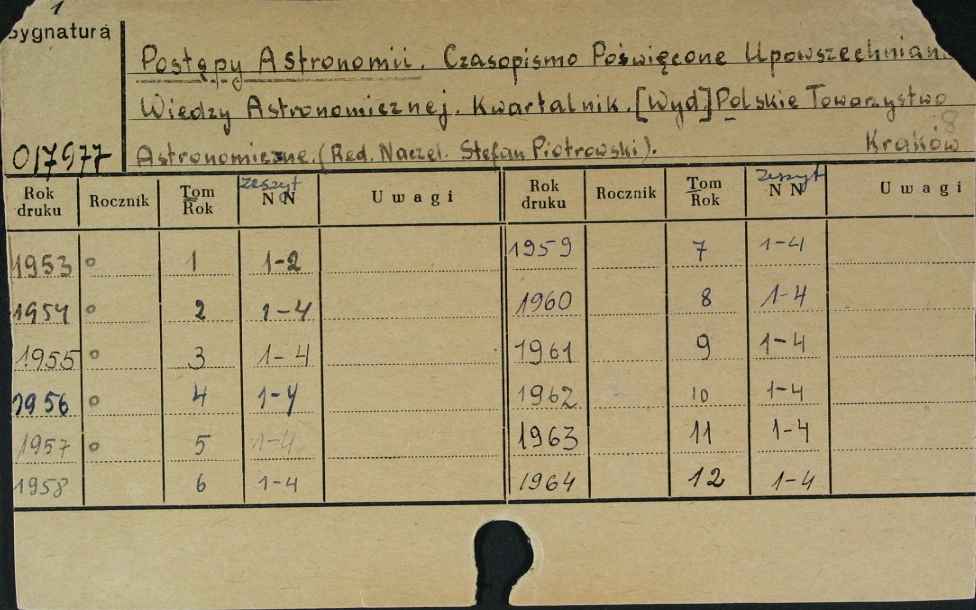 1
Sygnatura
Postępy Astronomii. Czasopismo Poświęcone Upowszechnian
Wiedzy Astronomicznej. Kwartalnik. [Wyd] Polskie Towarzystwo
8
017977 Astronomiczne. (Red. Naczel. Stefan Piotrowski). Kraków
Rok druku Rocznik Tom Rok zeszyt NN Uwagi Rok druku Rocznik Tom Rok zeszyt NN Uwagi
1953 o 1 1-2 1959 7 1-4
1954 o 2 1-4 1960 8 1-4
1955 o 3 1-4 1961 9 1-4
1956 o 4 1-4 1962 10 1-4
1957 o 5 1-4 1963 11 1-4
1958 6 1-4 1964 12 1-4